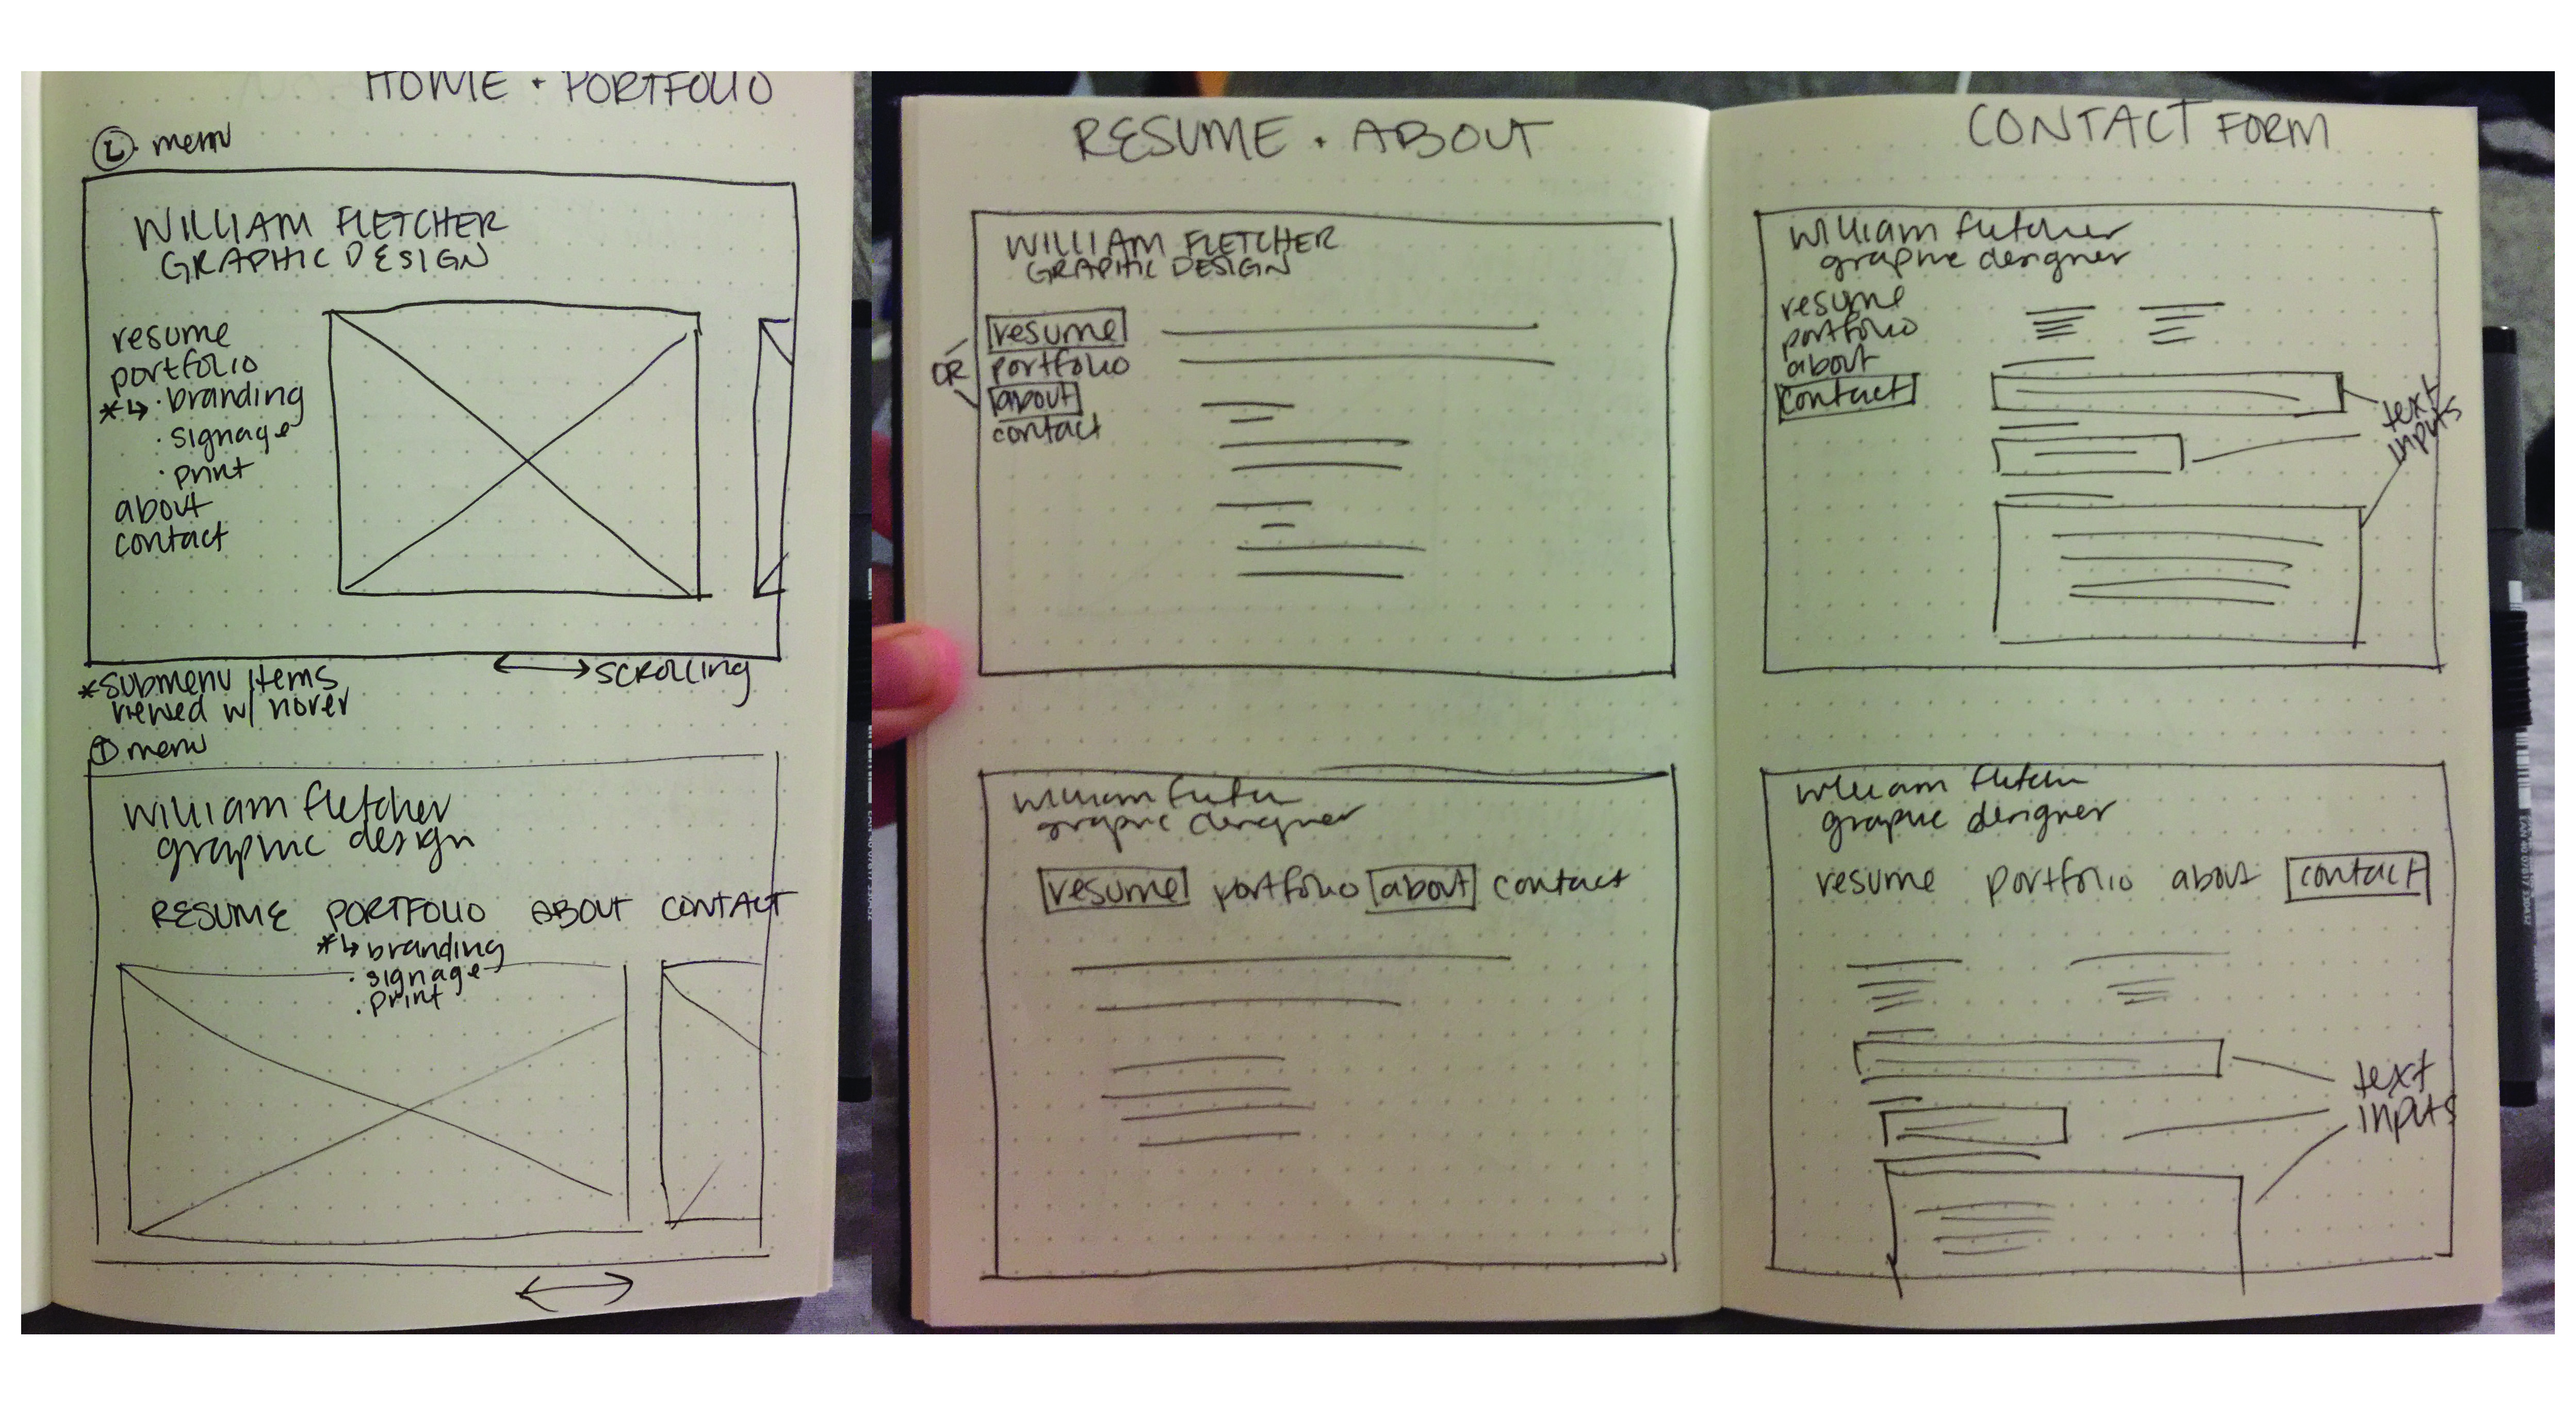 HOME + PORTFOLIO
L menu
WILLIAM FLETCHER
GRAPHIC DESIGN
resume
portfolio
*↳ · branding
· signage
· print
about
contact
*SUBMENU ITEMS
viewed w/ hover
←→ SCROLLING
T menu
william fletcher
graphic design
RESUME PORTFOLIO ABOUT CONTACT
*↳ branding
· signage
· print
RESUME + ABOUT
WILLIAM FLETCHER
GRAPHIC DESIGN
OR
resume
portfolio
about
contact
william
graphic designer
resume portfolio about contact
CONTACT FORM
william fletcher
graphic designer
resume
portfolio
about
contact
text
inputs
william
graphic designer
resume portfolio about contact
text
inputs